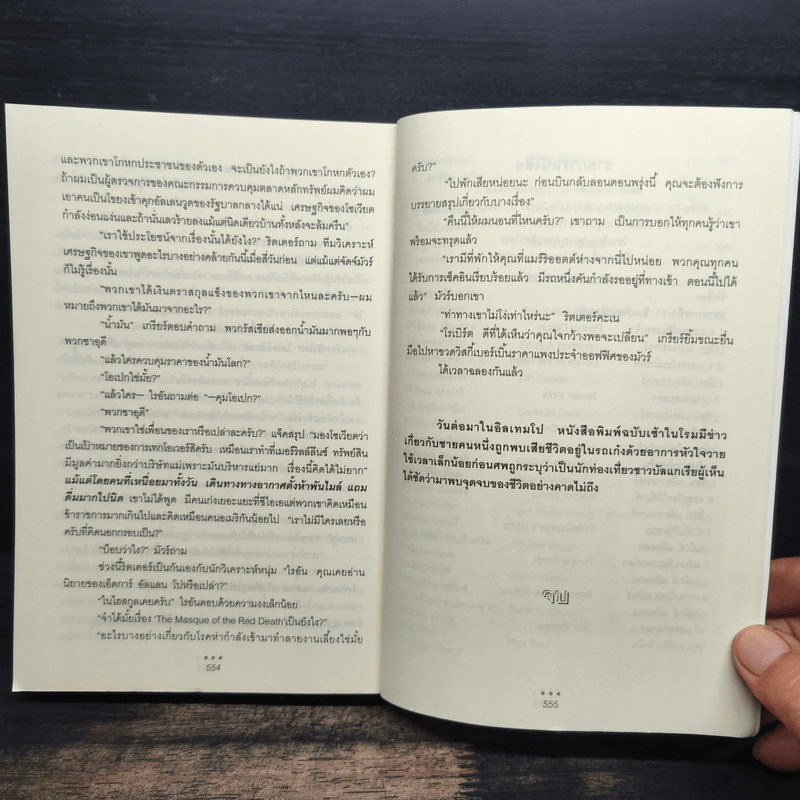 และพวกเขาโกหกประชาชนของตัวเอง จะเป็นยังไงถ้าพวกเขาโกหกตัวเอง?
ถ้าผมเป็นผู้ตรวจการของคณะกรรมการควบคุมตลาดหลักทรัพย์ผมคิดว่าผม
เอาคนเป็นโขยงเข้าคุกอัลเลนวูดของรัฐบาลกลางได้แน่ เศรษฐกิจของโซเวียต
กำลังง่อนแง่นและถ้านั่นเลวร้ายลงแม้แต่นิดเดียวบ้านทั้งหลังจะล้มครืน"
"เราใช้ประโยชน์จากเรื่องนั้นได้ยังไง?" ริตเตอร์ถาม ทีมวิเคราะห์
เศรษฐกิจของเขาพูดอะไรบางอย่างคล้ายกันนี้เมื่อสี่วันก่อน แต่แม้แต่จัดจ์มัวร์
ก็ไม่รู้เรื่องนั้น
"พวกเขาได้เงินตราสกุลแข็งของพวกเขาจากไหนละครับ—ผม
หมายถึงพวกเขาได้มันมาจากอะไร?"
"น้ำมัน" เกรียร์ตอบคำถาม พวกรัสเซียส่งออกน้ำมันมากพอๆกับ
พวกซาอุดี
"แล้วใครควบคุมราคาของน้ำมันโลก?"
"โอเปกใช่มั้ย?"
"แล้วใคร— ไรอันถามต่อ "—คุมโอเปก?"
"พวกซาอุดี"
"พวกเขาใช่เพื่อนของเราหรือเปล่าละครับ?" แจ็คสรุป "มองโซเวียตว่า
เป็นเป้าหมายของการเทกโอเวอร์สิครับ เหมือนเราทำที่เมอร์ริลล์ลีนช์ ทรัพย์สิน
มีมูลค่ามากยิ่งกว่าบริษัทแม่เพราะมันบริหารแย่มาก เรื่องนี้คิดได้ไม่ยาก"
แม้แต่โดยคนที่เหนื่อยมาทั้งวัน เดินทางทางอากาศตั้งห้าพันไมล์ แถม
ดื่มมากไปนิด เขาไม่ได้พูด มีคนเก่งเยอะแยะที่ซีไอเอแต่พวกเขาคิดเหมือน
ข้าราชการมากเกินไปและคิดเหมือนคนอเมริกันน้อยไป "เราไม่มีใครเลยหรือ
ครับที่คิดนอกกรอบเป็น?"
"บ๊อบว่าไง?" มัวร์ถาม
ช่วงนี้ริตเตอร์เป็นกันเองกับนักวิเคราะห์หนุ่ม "ไรอัน คุณเคยอ่าน
นิยายของเอ็ดการ์ อัลแลน โปหรือเปล่า?"
"ในไฮสกูลเคยครับ" ไรอันตอบด้วยความงงเล็กน้อย
"จำได้มั้ยเรื่อง 'The Masque of the Red Death'เป็นยังไง?"
"อะไรบางอย่างเกี่ยวกับโรคห่ากำลังเข้ามาทำลายงานเลี้ยงใช่มั้ย
554
ครับ?"
"ไปพักเสียหน่อยนะ ก่อนบินกลับลอนดอนพรุ่งนี้ คุณจะต้องฟังการ
บรรยายสรุปเกี่ยวกับบางเรื่อง"
"คืนนี้ให้ผมนอนที่ไหนครับ?" เขาถาม เป็นการบอกให้ทุกคนรู้ว่าเขา
พร้อมจะทรุดแล้ว
"เรามีที่พักให้คุณที่แมร์ริออตต์ห่างจากนี่ไปหน่อย พวกคุณทุกคน
ได้รับการเช็คอินเรียบร้อยแล้ว มีรถหนึ่งคันกำลังรออยู่ที่ทางเข้า ตอนนี้ไปได้
แล้ว" มัวร์บอกเขา
"ท่าทางเขาไม่โง่เท่าไหร่นะ" ริตเตอร์คะเน
"โรเบิร์ต ดีที่ได้เห็นว่าคุณใจกว้างพอจะเปลี่ยน" เกรียร์ยิ้มขณะยื่น
มือไปหาขวดวิสกี้เบอร์เบินราคาแพงประจำออฟฟิศของมัวร์
ได้เวลาฉลองกันแล้ว
วันต่อมาในอิลเทมโป หนังสือพิมพ์ฉบับเช้าในโรมมีข่าว
เกี่ยวกับชายคนหนึ่งถูกพบเสียชีวิตอยู่ในรถเก๋งด้วยอาการหัวใจวาย
ใช้เวลาเล็กน้อยก่อนศพถูกระบุว่าเป็นนักท่องเที่ยวชาวบัลแกเรียผู้เห็น
ได้ชัดว่ามาพบจุดจบของชีวิตอย่างคาดไม่ถึง
จบ
555